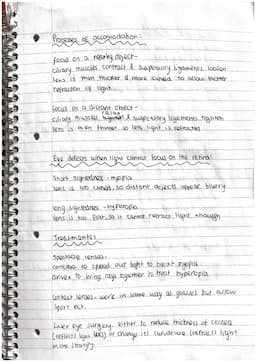 Processes of accomodation:
focus on a nearby object-
ciliary muscles contract & suspensory ligaments loosen
lens is then thicker & more curved to allow better
refraction of light.
focus on a distant object-
ciliary muscles relax & suspensory ligements tighten
lens is then thinner so less light is refracted
Eye defects when light cannot focus on the retina:
Short sightedness - myopia
lens is too curved, so distant objects appear blurry
long sightedness - hyperopia
lens is too flat, so it cannot refract light enough
Treatments:
Spectacle lenses:
concave to spread out light to treat myopia
convex to bring rays together to treat hyperopia
Contact lenses- work in same way as glasses but allow
sport ect.
Laser eye surgery- either to reduce thickness of cornea
(refract light less) or change its curvature (refract light
more strongly